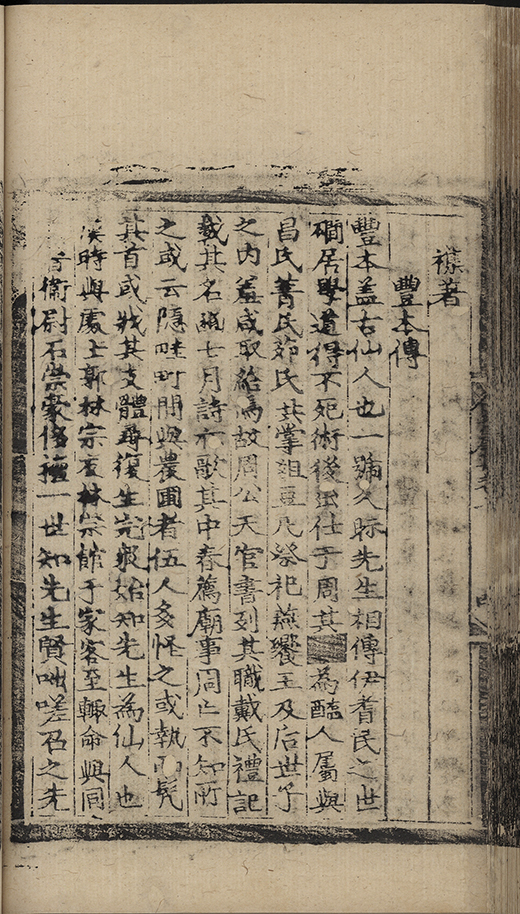 襍著
豐本傳
豐本盖古仙人也一號久眎先生相傳伊耆民之世
磵居學道得不死術後出仕于周其為醢人屬與
昌氏菁氏茆氏共掌俎豆凡祭祀燕饗王及后世子
之内羞咸取給焉故周公天官書列其職戴氏禮記
載其名豳七月詩亦歌其中春薦廟事周亡不知所
之或云隱畦町間與農圃者伍人多怪之或執而髡
其首或戕其支體尋復生完疲始知先生為仙人也
漢時與處士郭林宗友林宗館于家客至輙命與同
晉衞尉石崇豪侈擅一世知先生賢咄嗟召之先